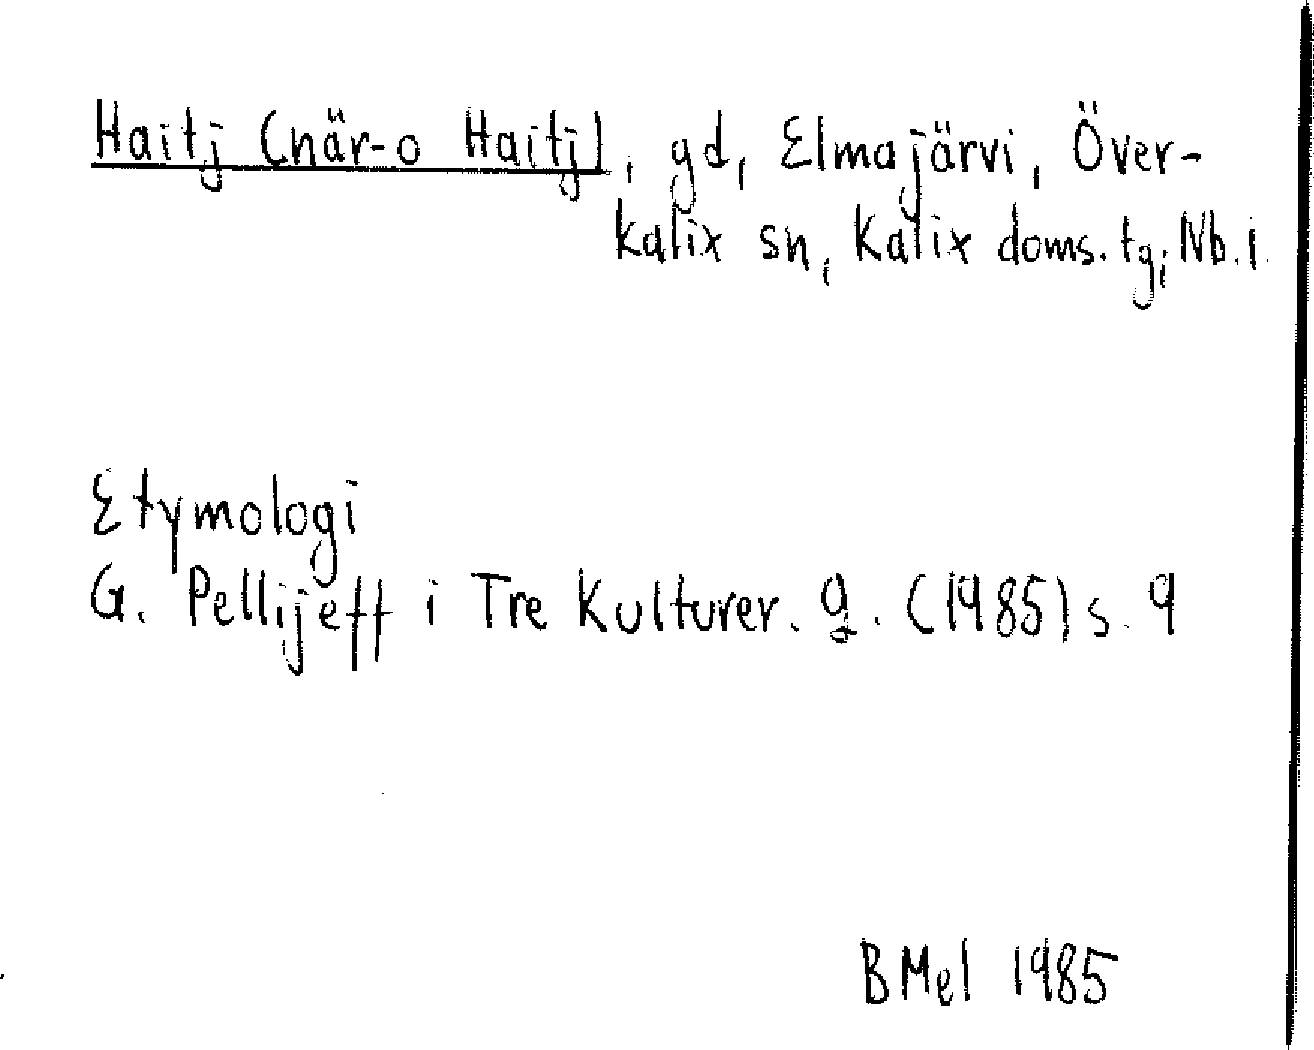 Haitj (när-o Haitj), gd, Elmajärvi, Över-
kalix sn, Kalix doms. tg, Nb. l.
Etymologi
G. Pellijeff i Tre Kulturer. 2. (1985) s. 9
BMel 1985